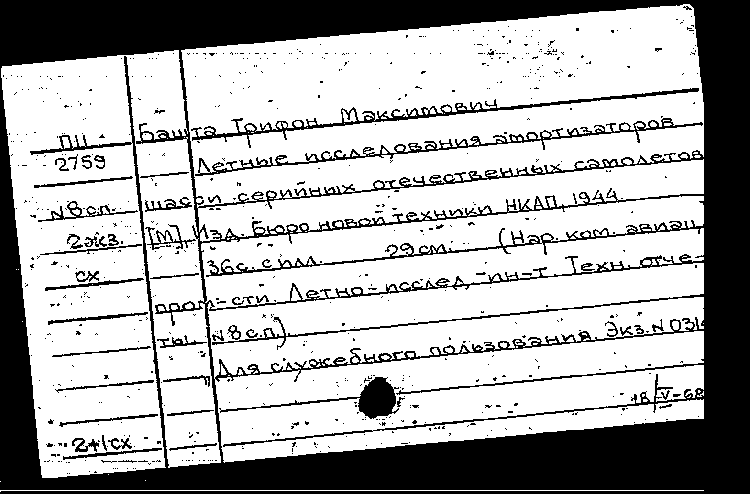 ПЦ Башта, Трифон Максимович
2759 Летные исследования амортизаторов
N8сп. шасси серийных отечественных самолетов
2экз. [М], Изд. Бюро новой техники НКАП, 1944.
сх 36с. с илл. 29см. (Нар. ком. авиац.
пром-сти. Летно-исслед. ин-т. Техн. отче-
ты. N8с.п.).
"Для служебного пользования. Экз. N031
18/V-68
2+1сх